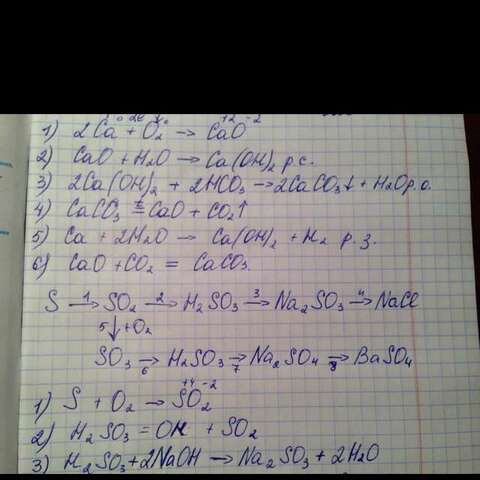 1) 2Ca + O₂ → CaO
2) CaO + H₂O → Ca(OH)₂ р.с.
3) 2Ca(OH)₂ + 2HCO₃ → 2CaCO₃↓ + H₂O р.о.
4) CaCO₃ =ᵗ CaO + CO₂↑
5) Ca + 2H₂O → Ca(OH)₂ + H₂ р.з.
6) CaO + CO₂ = CaCO₃.
S —1→ SO₂ —2→ H₂SO₃ —3→ Na₂SO₃ —4→ NaCl
5 ↓ +O₂
SO₃ →6 H₂SO₃ →7 Na₂SO₄ →8 BaSO₄
+4 -2
1) S + O₂ → SO₂
2) H₂SO₃ = OH + SO₂
3) H₂SO₃ + 2NaOH → Na₂SO₃ + 2H₂O